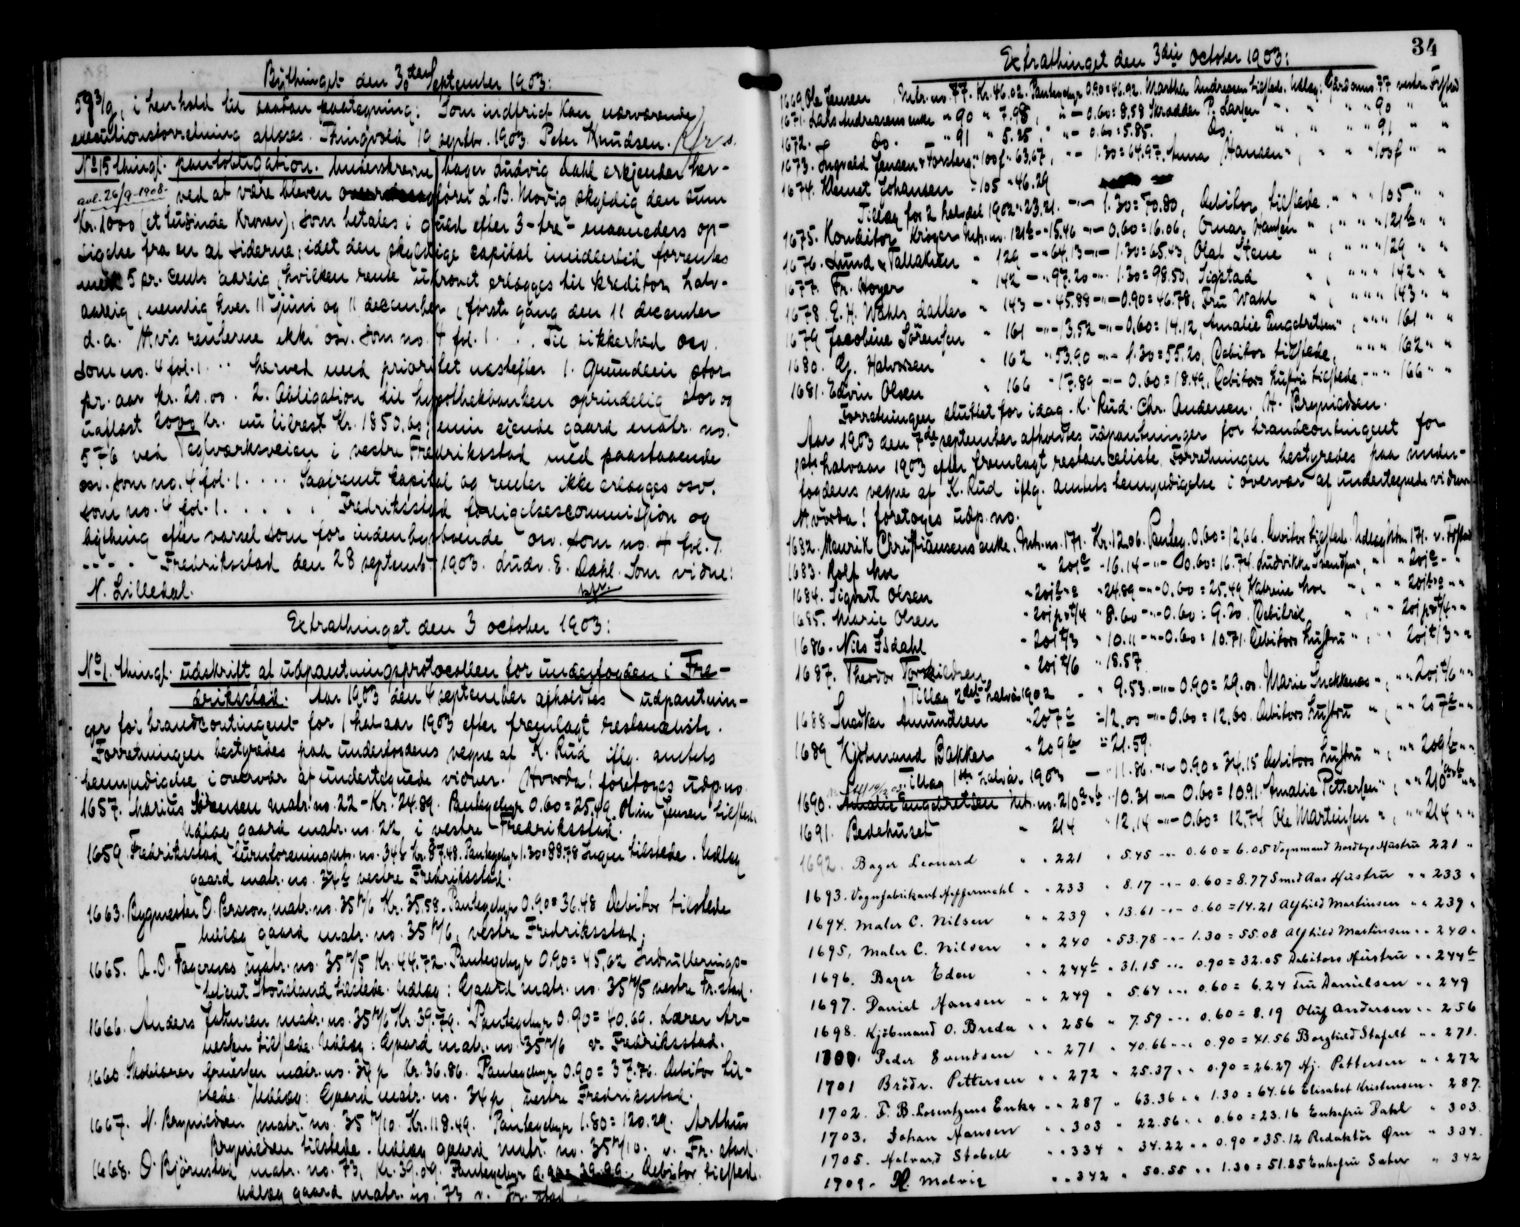 Bythinget den 30te September 1903:
59 3/9, i henhold til saadan paategning: Som indbragt kan nærværende
executionsforretning aflæses. Thingvold 19 septbr. 1903. Peter Knudsen.
No 15 thingl. pantobligation. Underskrevne bager Ludvig Dahl erkjender her-
avl. 26/9-1908. ved at være bleven L. B. Morvig skyldig den sum
Kr. 1000 (et tusinde Kroner), som betales i guld efter 3-tre- maaneders op-
sigelse fra en af siderne, idet den skyldige capital imidlertid forrentes
med 5 pr. cents aarlig, hvilken rente ufravent erlægges til kreditor halv-
aarlig, nemlig hver 11 juni og 11 december, første gang den 11 december
d.a. Hvis renterne ikke osv. som no. 4 fol. 1 . . . Til sikkerhed osv.
som no. 4 fol. 1 . . . herved med prioritet næstefter 1. Grundleie stor
pr. aar kr. 20.00. 2. Obligation til hypothekbanken oprindelig stor og
uafløst 2000 Kr. nu tilrest Kr. 1850,00, min eiende gaard matr. no.
576 ved Teglværksveien i vestre Fredriksstad med paastaaende
osv. som no. 4 fol. 1. . . . Saafremt kapital og renter ikke erlægges osv.
som no. 4 fol. 1. . . . . Fredriksstad forligelsescommission og
bything efter varsel som for indenbys boende osv. som no. 4 fol. 1.
. . . . Fredriksstad den 28 septemb. 1903. Ludv. E. Dahl. Som vidne:
N. Lilledal.
Extrathinget den 3 october 1903:
No 1. thingl. udskrift af udpantningsprotocollen for underfogden i Fre-
driksstad. Aar 1903 den 4 september afholdtes udpantnin-
ger for brandcontingent for 1 halvaar 1903 efter fremlagt restanceliste.
Forretningen bestyredes paa underfogdens vegne af K. Rud iflg. amtets
bemyndigelse i overvær af undertegnede vidner. Hvorda! foretoges udp. no.
1657. Marius Sørensen matr. no. 22 - Kr. 24.89. Pantegebyr 0.60 = 25,49. Olvin Jensen tilstede.
Udlæg gaard matr. no. 22 i vestre Fredriksstad.
1659. Fredriksstad turnforening matr. no. 34b Kr. 87.48. Pantegebyr 1.30 = 88.78 Ingen tilstede. Udlæg
gaard matr. no. 34b vestre Fredriksstad.
1663. Bygmester O. Persson, matr. no. 35m/6 Kr. 35.58. Pantegebyr 0.90 = 36.48 Debitor tilstede
Udlæg gaard matr. no. 35m/6, vestre Fredriksstad;
1665. A. O. Fagernes matr. no. 35m/5 Kr. 44.72. Pantegebyr 0.90 = 45,62 Indrulerings-
betjent tilstede. Udlæg: Gaard matr. no. 35m/5 vestre Fr. stad.
1666. Anders Johnsen matr. no. 35m/6 Kr. 39.79. Pantegebyr 0.90 = 40.69. Lærer Ar-
nesen tilstede. Udlæg: Gaard matr. no. 35m/6 v. Fredriksstad.
1660. Skibsfører matr. no. 34p Kr. 36.86. Pantegebyr 0.90 = 37.76. Debitor til-
stede. Udlæg: Gaard matr. no. 34p, vestre Fredriksstad.
1667. N. Brynildsen matr. no. 35m/10. Kr. 118.49. Pantegebyr 1.80 = 120.29. Arthur
Brynildsen tilstede. Udlæg gaard matr. no. 35m/10. v. Fr. stad.
1668. O. Bjørnstad matr. no. 73, Kr. 39.09. Pantegebyr 0.90 = 39.99. Debitor tilsted.
Udlæg gaard matr. no. 73 v. Fr. stad.
34
Extrathinget den 3die october 1903:
1669. Ole Jensen, Matr. no. 77. Kr. 46.02. Pantegebyr 0.90 = 46.92. Martha Andreasen tilstede. Udlæg: Gaard no. 77 vestre Fr.stad
1671. Lars Andreasens enke " 90 " 7.98, " - 0.60 = 8.58 Skrædder P. Larsen " " " " 90 " "
1672. Do. " 91 " 5.25, " - 0.60 = 5.85. Do. " " " " 91 " "
1673. Ingvald Jensen & Forsberg " 100f " 63,67, " - 1.30 = 64.97. Anna Hansen " " " 100f " "
1674. Klemet Johansen - 105 - 46.29
Tillæg for 2 halvdel 1902 - 23.21. - " - 1.30 = 70.80, Debitor tilstede. - " " 105 " "
1675. Konditor Krøger Matr. no. 121b - 15.46 - " - 0.60 = 16.06, Omar Hansen " " " " 121b " "
1676. Lund & Tallaksen " 129 - " 64.13 - " - 1.30 = 65.43, Olaf Stene " " " 129 " "
1677. Fr. Hoyer " 142 - " 97.20 - " - 1.30 = 98.50, Sigstad " " " 142 " "
1678. E. H. Wahls datter " 143 - " 45.88 - " - 0.90 = 46.78, Fru Wahl " " " " 143 " "
1679. Jacobine Sørensen " 161 - " - 13.52 - " - 0.60 = 14.12, Amalie Engebretsen " " " " 161 " "
1680. G. Halvorsen " 162 " 53.90 - " - 1.30 = 55.20, Debitor tilstede, " " " 162 " "
1681. Edvin Olsen " 166 " 17.89 - " - 0.60 = 18.49. Debitors hustru tilstede, - " " 166 " "
Forretningen sluttet for idag. K. Rud. Chr. Andersen. H. Brynildsen.
Aar 1903 den 7de september afholdtes udpantninger for brandcontingent for
1ste halvaar 1903 efter fremlagt restanceliste. Forretningen bestyredes paa under-
fogdens vegne af K. Rud iflg. amtets bemyndigelse i overvær af undertegnede vidner.
Hvorda! foretoges udp. no.
1682. Maurik Christiansens enke. Matr. no. 171. Kr. 12.06. Panteg. 0.60 = 12,66. Debitor tilstede. Udlæg Matr. 171. v. Fr.stad
1683. Rolf Moe " 201a " 16.14 - " - 0.60 = 16.74.
1684. Sigvart Olsen " 24.89 - " - 0.60 = 25.49 Katrine Moe
1685. Marie Olsen " 8.60 - " - 0.60 = 9.20. Debitrix
1686. Nils Isdahl " 201t/3 " 10.11 - " - 0.60 = 10.71. Debitors hustru " " 201t/3 " "
1687. Theodor Torkildsen " 201t/6 " 18.57.
Tillæg 2det halvår 1902 - " 9.53. - " - 0.90 = 29.00. Marie Snekkenes - " " 201t/6 " "
1688. Snedker Amundsen " 207a " 12.00 - " - 0.60 = 12,60. Debitors hustru " " " 207a " "
1689. Kjøbmand Bakker " 209b " 21.59.
Tillæg 1ste halvår 1903 - " 11.86. - " - 0.90 = 34.15 Debitors hustru " " " 209b " "
1690. Amalie Engebretsen Matr. no. 210 " 10.31 - " - 0.60 = 10.91. Amalie Pettersen " " " 210
1691. Bedehuset " 214 " 12,14 - " - 0.60 = 12,74 Ole Martinsen " " " 214 " "
1692. Bager Leonard " " 221 " 5.45 - " - 0.60 = 6.05 Vognmand Nordbys Hustru 221 "
1693. Vognfabrikant Heffermehl " " 233 " 8.17 - " - 0.60 = 8.77 Smed Aas Hustru " " 233 "
1694. Maler C. Nilsen " " 239 " 13.61 - " - 0.60 = 14.21 Alfhild Martinsen " " 239 "
1695. Maler C. Nilsen " " 240 " 53.78 - " - 1.30 = 55.08 Alfhild Martinsen " " 240 "
1696. Bager Eden " " 244b " 31.15 - " - 0.90 = 32.05 Debitors Hustru " " 244b
1697. Daniel Hansen " " 249 " 5.64 - " - 0.60 = 6.24 Fru Danielsen " " 249
1698. Kjøbmand O. Breda " " 256 " 7.59 - " - 0.60 = 8.19 Oluf Andersen " " 256
1700. Peder Svendsen " " 271 " 40.66 - " - 0.90 = 41.56 Borghild Stafelt " " 271.
1701 Brødr. Pettersen " " 272 " 25.37 " " 0.90 = 26.27 Hj. Pettersen " " 272
1702. F. B. Lorentzens Enke " " 287 " 63.36 " " 1.30 = 64.66 Elisabet Kristensen " 287
1703. Johan Hansen " " 303 " 22.56 " " 0.60 = 23.16 Enkefru Dahl " 303
1705. Halvard Stabell " " 334 " 34.22 " " 0.90 = 35.12 Redaktør Ørn " 334.
1709. H. Melvig " " 342 " 50.55 " " 1.30 = 51.85 Enkefru Sater " 342